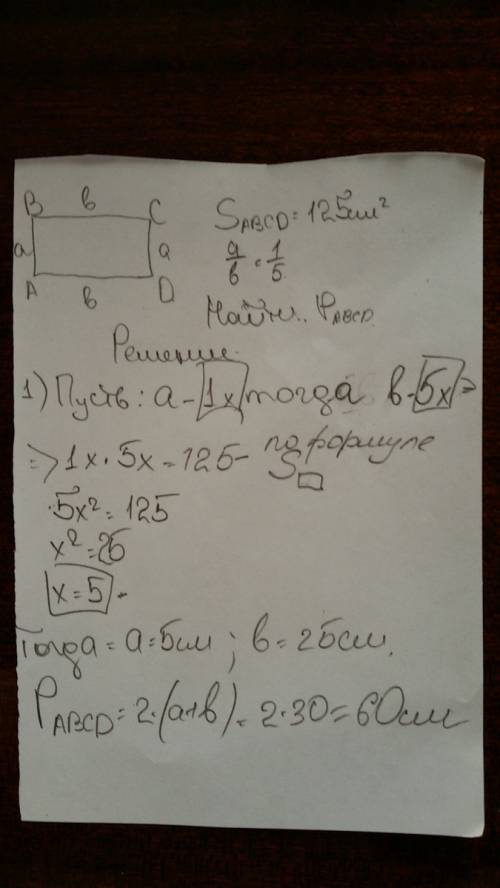 B в C
a a
A в D
S ABCD = 125см²
a/в = 1/5
Найти: P ABCD
Решение.
1) Пусть: a - 1x, тогда в - 5x =>
=> 1x · 5x = 125 - по формуле
S▭
5x² = 125
x² = 25
x = 5.
Тогда = a = 5см ; в = 25см.
P ABCD = 2·(a+в) = 2·30 = 60см